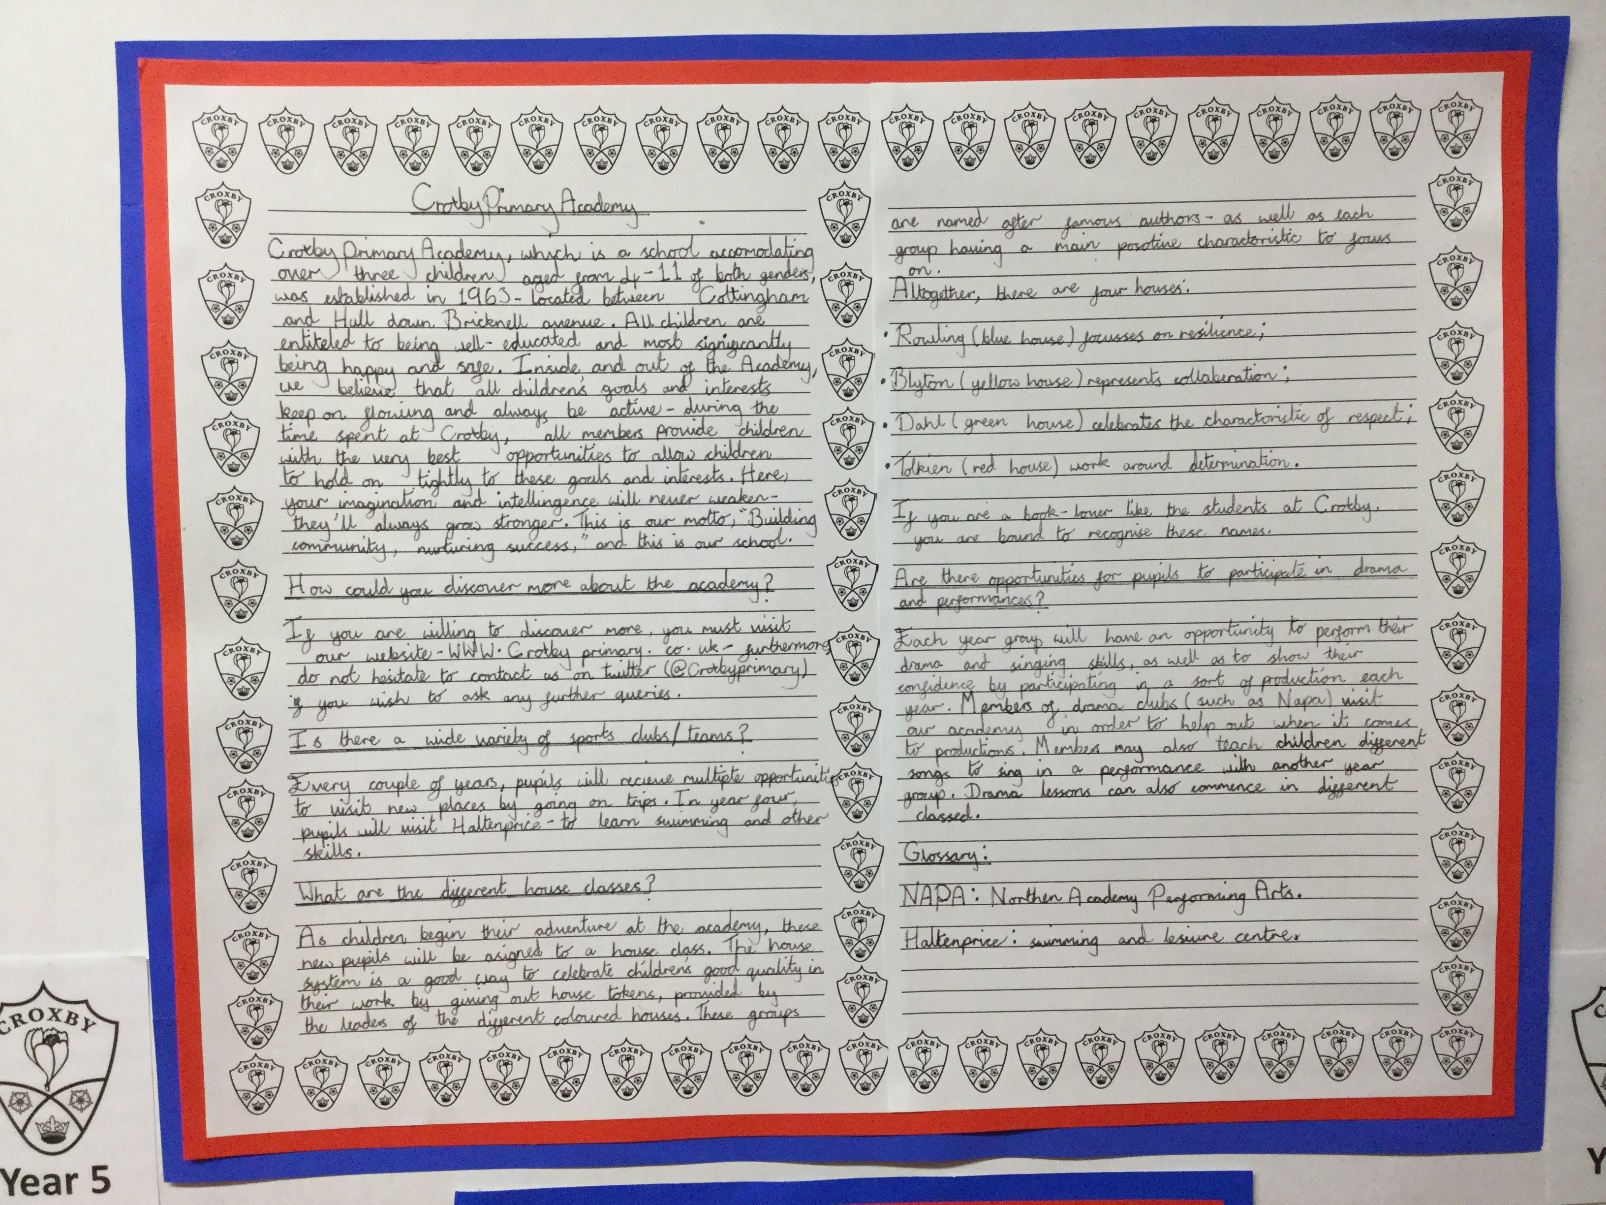 Croxby Primary Academy
Croxby Primary Academy, which is a school accomodating
over three children aged from 4-11 of both genders,
was established in 1963- located between Cottingham
and Hull down Bricknell avenue. All children are
entiteled to being well-educated and most significantly
being happy and safe. Inside and out of the Academy,
we believe that all children's goals and interests
keep on flowing and always be active - during the
time spent at Croxby, all members provide children
with the very best opportunities to allow children
to hold on tightly to these goals and interests. Here,
your imagination and intellingence will never weaken-
they'll always grow stronger. This is our motto, "Building
community, nurturing success," and this is our school.
How could you discover more about the academy?
If you are willing to discover more, you must visit
our website - WWW. Croxby primary. co. uk - furthermore,
do not hesitate to contact us on twitter (@Croxbyprimary)
if you wish to ask any further queries.
Is there a wide variety of sports clubs/teams?
Every couple of years, pupils will recieve multiple opportunities
to visit new places by going on trips. In year four,
pupils will visit Haltenprice - to learn swimming and other
skills.
What are the different house classes?
As children begin their adventure at the academy, these
new pupils will be asigned to a house class. The house
system is a good way to celebrate children's good quality in
their work by giving out house tokens, provided by
the leaders of the different coloured houses. These groups
are named after famous authors - as well as each
group having a main posotive characteristic to focus
on.
Altogether, there are four houses:
• Rowling (blue house) focusses on resilience;
• Blyton (yellow house) represents collaberation;
• Dahl (green house) celebrates the charactoristic of respect;
• Tolkien (red house) work around determination.
If you are a book-lover like the students at Croxby,
you are bound to recognise these names.
Are there opportunities for pupils to participate in drama
and performances?
Each year group will have an opportunity to perform their
drama and singing skills, as well as to show their
confidence by participating in a sort of production each
year. Members of drama clubs (such as Napa) visit
our academy in order to help out when it comes
to productions. Members may also teach children different
songs to sing in a performance with another year
group. Drama lessons can also commence in different
classed.
Glossary:
NAPA: Northen Academy Performing Arts.
Haltenprice: swimming and lesiure centre.
CROXBY
Year 5